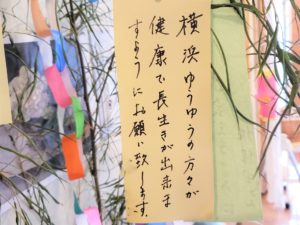 横浜ゆうゆうの方々が
健康で長生きが出来ま
すようにお願い致します。